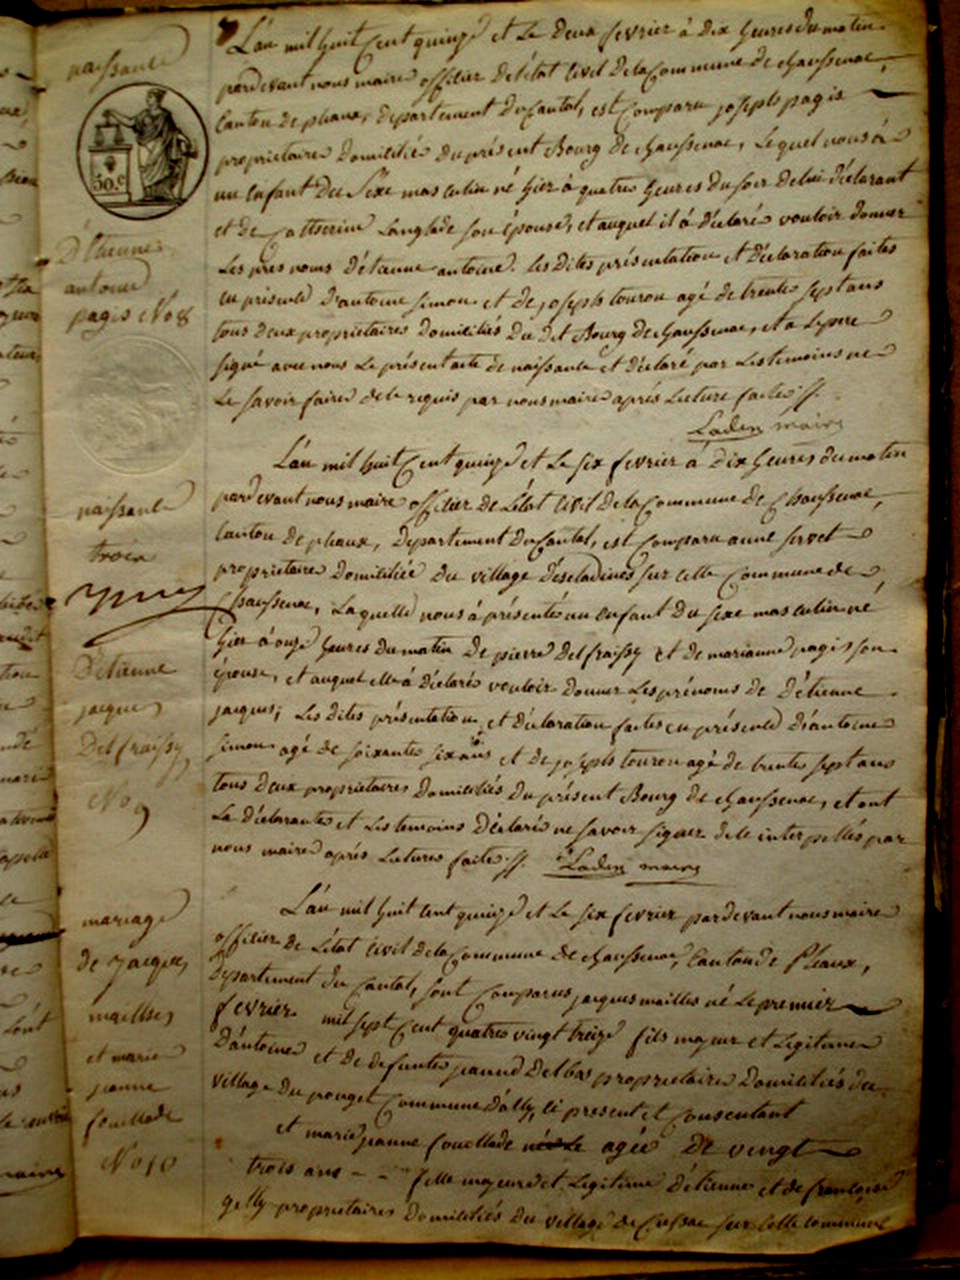 naissance
30.c
D'Etienne
antoine
pagis No 8
L'an mil huit Cent quinze et le deux fevrier à dix heures du matin
pardevant nous maire officier de létat Civil de la Commune de chaussenac,
Canton de pleaux, departement du Cantal, est Comparu joseph pagis
proprietaire domicilié du présent Bourg de chaussenac, Lequel nous à
un Enfant du Sexe masculin né hier à quatre heures du soir de lui déclarant
et de Catherine Langlade son épouse, et auquel il à déclaré vouloir donner
Les pres noms d'étienne antoine. Les dites présentation et déclaration faites
en présence d'antoine simon et de joseph touron agé de trente sept ans
tous deux proprietaires domiciliés du dit Bourg de chaussenac, et a Le pere
signé avec nous Le présent acte de naissance et déclaré par Les temoins ne
Le savoir faire de le requis par nous maire après Lecture faite ff.
Laden maire
naissance
trois
D'Etienne
jacques
Delfraissy
No 9
L'an mil huit Cent quinze et Le six fevrier à dix heures du matin
pardevant nous maire officier de Létat Civil de la Commune de Chaussenac,
Canton de pleaux, departement du Cantal, est Comparu anne servet
proprietaire domiciliée du village d'Escladines sur cette Commune de
Chaussenac, Laquelle nous à présenté un enfant du sexe masculin né
hier à onze heures du matin de pierre Delfraissy et de marianne pagis son
épouse, et auquel elle à déclaré vouloir donner Les prénoms de D'étienne
jacques; Les dites présentation et déclaration faites en présence d'antoine
simon agé de soixante six ans et de joseph touron agé de trente sept ans
tous deux proprietaires domiciliés du présent Bourg de chaussenac, et ont
La déclarante et Les temoins déclaré ne savoir signer de le interpellés par
nous maire après Lecture faite ff. Laden maire
mariage
de jacques
mailhes
et marie
jeanne
fouillade
No 10
L'an mil huit Cent quinze et Le six fevrier pardevant nous maire
officier de Létat Civil de la Commune de chaussenac, Canton de Pleaux,
departement du Cantal, sont Comparus jacques mailles né Le premier
fevrier mil sept Cent quatre vingt treize fils majeur et Legitime
D'antoine et de defunte jeanne Delbos proprietaire domiciliés du
village du pouget Commune d'ally, ci present et Consentant
et marie jeanne fouillade née Le agée De vingt
trois ans - - fille majeure et Legitime d'étienne et de françoise
gelly proprietaires domiciliés du village de Cussac sur cette commune